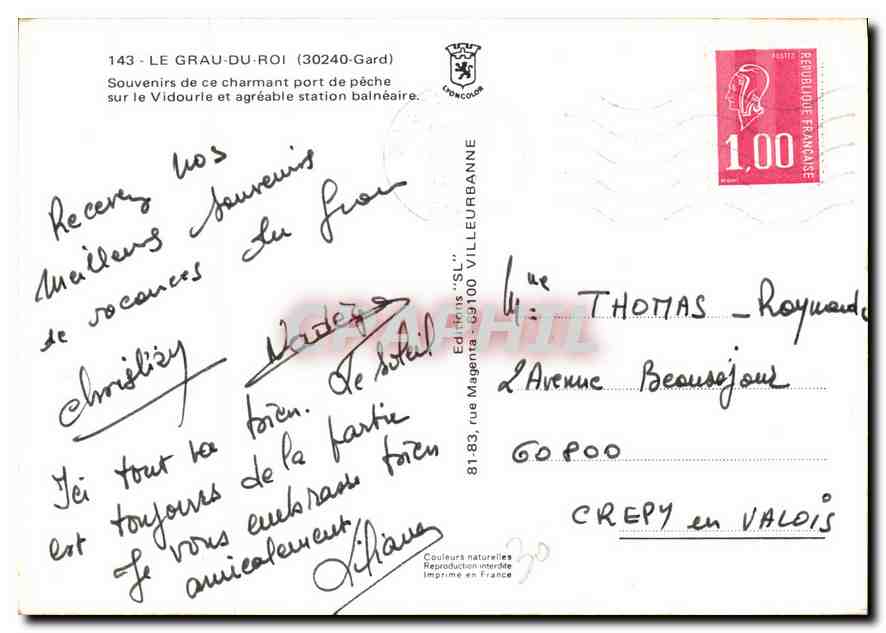 143 - LE GRAU-DU-ROI (30240-Gard)
Souvenirs de ce charmant port de pêche
sur le Vidourle et agréable station balnéaire.
LYONCOLOR
POSTES
RÉPUBLIQUE FRANÇAISE
1,00
Recevez nos
meilleurs souvenirs
de vacances du Grau
Nadège
Ici tout va bien. Le soleil
est toujours de la partie
Je vous embrasse bien
amicalement
Liliane
Editions "SL"
81-83, rue Magenta - 69100 VILLEURBANNE
CPAPHIL
Mme: THOMAS - Raymonde
2 Avenue Beauséjour
60800
CREPY en VALOIS
Couleurs naturelles
Reproduction interdite
Imprimé en France
30